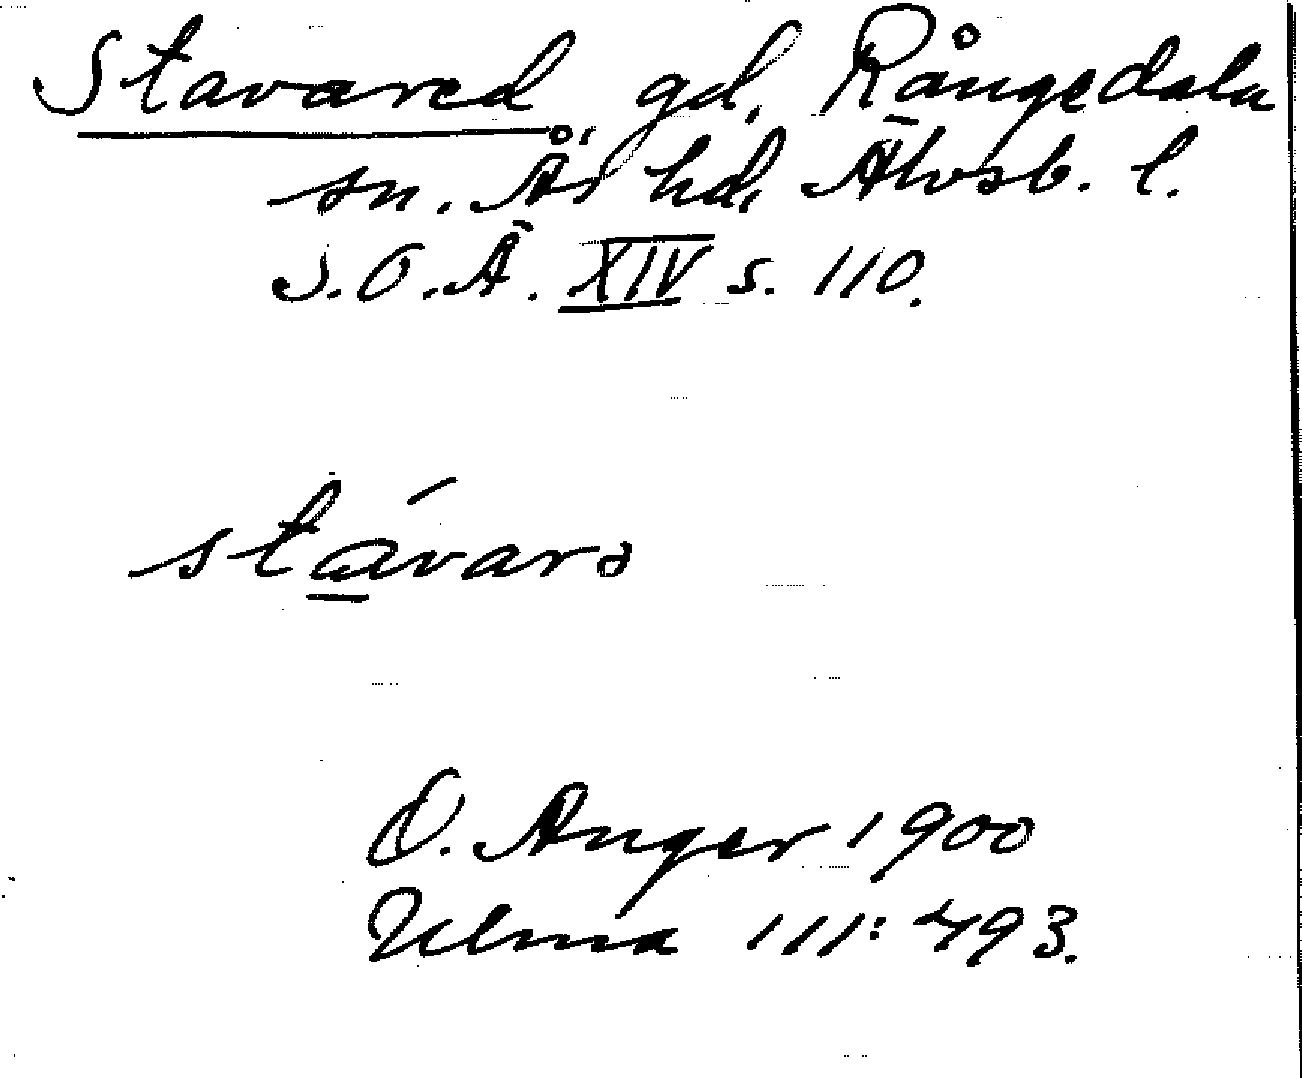 Stavared gd. Rångedala
sn. Ås hd, Älvsb. l.
S.O.Ä. XIV s. 110.
stávarə
O. Anger 1900
Ulma 111:493.